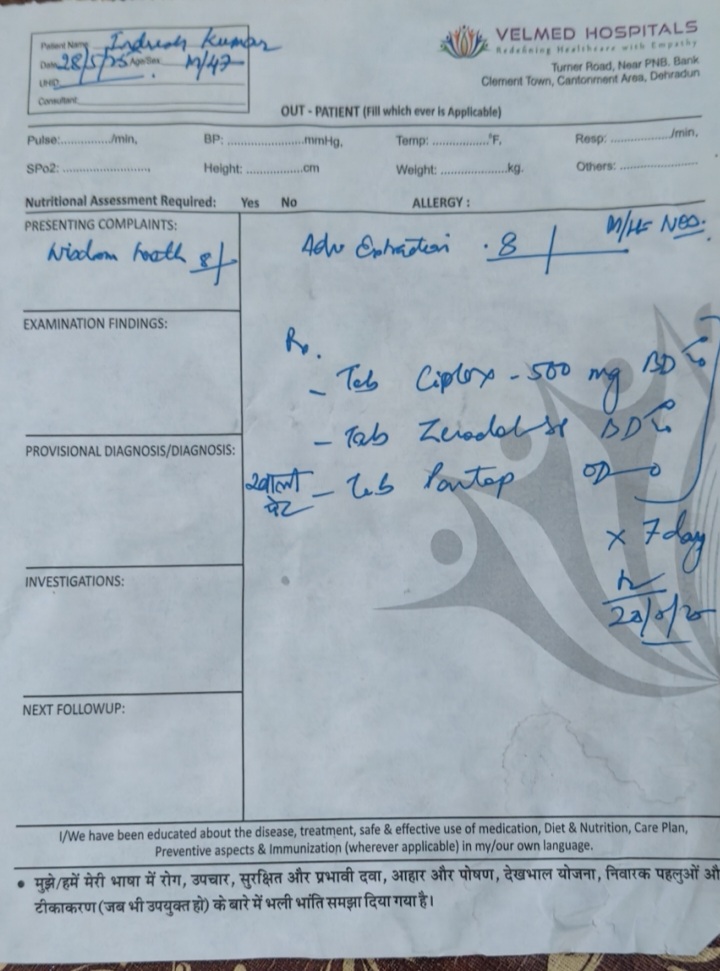 Patient Name Indresh Kumar
Date 28/5/25 Age/Sex M/47
UHID
Consultant
VELMED HOSPITALS
Redefining Healthcare with Empathy
Turner Road, Near PNB. Bank
Clement Town, Cantonment Area, Dehradun
OUT - PATIENT (Fill which ever is Applicable)
Pulse:.............../min, BP: .......................mmHg, Temp: .................°F, Resp: ................/min,
SPo2: ........................, Height: .................cm Weight: ....................kg. Others: .......................
Nutritional Assessment Required: Yes No ALLERGY :
PRESENTING COMPLAINTS:
Wisdom tooth 8
Adv Extraction 8
EXAMINATION FINDINGS:
Rx.
- Tab Ciplox - 500 mg BD
- Tab Zerodol BD
PROVISIONAL DIAGNOSIS/DIAGNOSIS:
खाली पेट - Tab Pantop OD
x 7 day
INVESTIGATIONS:
NEXT FOLLOWUP:
I/We have been educated about the disease, treatment, safe & effective use of medication, Diet & Nutrition, Care Plan,
Preventive aspects & Immunization (wherever applicable) in my/our own language.
• मुझे/हमें मेरी भाषा में रोग, उपचार, सुरक्षित और प्रभावी दवा, आहार और पोषण, देखभाल योजना, निवारक पहलुओं औ
टीकाकरण (जब भी उपयुक्त हो) के बारे में भली भांति समझा दिया गया है।